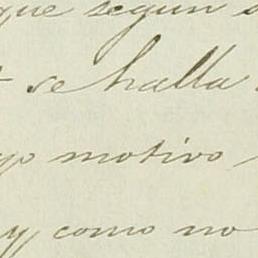 que segun
se halla
motivo
y como no